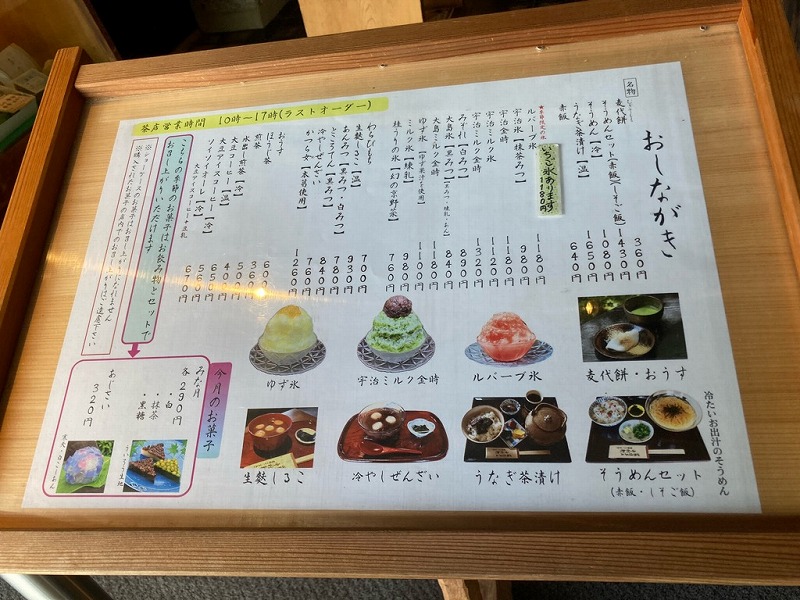 おしながき
名物
麦代餅 360円
そうめんセット(赤飯/しそご飯) 1430円
そうめん【冷】 1080円
うなぎ茶漬け【温】 1050円
赤飯 640円
ルバーブ氷 1180円
いちご氷あります
1180円
宇治氷【抹茶みつ】 980円
宇治金時 1180円
宇治ミルク氷 1120円
宇治ミルク金時 1320円
みぞれ【白みつ】 890円
大島氷【黒みつ】 840円
大島ミルク金時 1180円
ゆず氷 1100円
ミルク氷【練乳】 980円
桂うりの氷【幻の京野菜】 760円
わらびもち 700円
生麩しるこ【温】 930円
あんみつ【黒みつ・白みつ】 780円
ところてん【黒みつ】 840円
冷やしぜんざい 760円
かつら女【本葛使用】 1260円
おうす 600円
ほうじ茶
煎茶 360円
水出し煎茶【冷】 500円
大豆コーヒー【温】 400円
大豆アイスコーヒー【冷】 560円
ソイソイオーレ【冷】 670円
茶店営業時間 10時〜17時(ラストオーダー)
こちらの季節のお菓子はお飲み物とセットで
お召し上がりいただけます
今月のお菓子
みな月
各290円
・白
・抹茶
・黒糖
あじさい
320円
ゆず氷
宇治ミルク金時
ルバーブ氷
麦代餅・おうす
生麩しるこ
冷やしぜんざい
うなぎ茶漬け
そうめんセット
(赤飯・しそご飯)
冷たいお出汁のそうめん